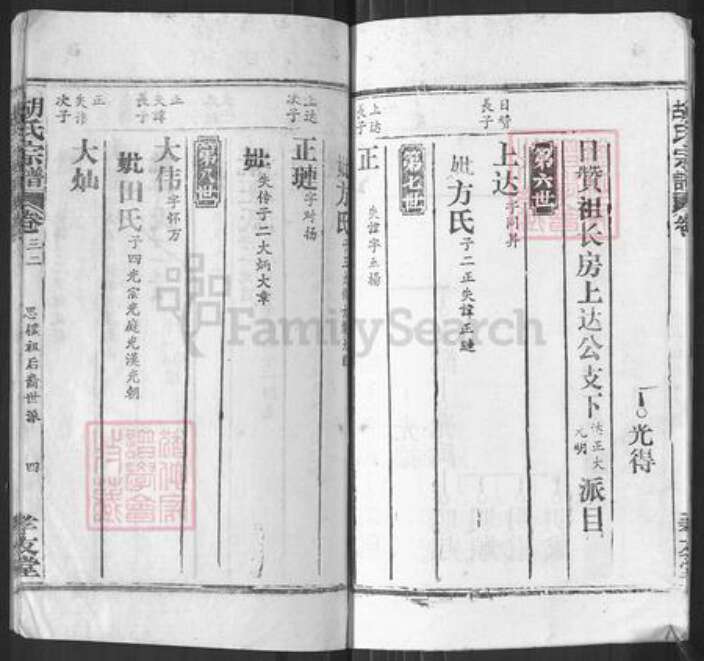 光得
日赞祖长房上达公支下 正大光明 派目
第六世
日赞长子
上达 字同昇
妣方氏 子二正失諱正璉
第七世
上达长子
正 失諱字玉楊
妣方氏
上达次子
正璉 字对扬
妣 失传子二大炳大章
第八世
正失諱长子
大伟 字怀万
妣田氏 子四光宗光庭光漢光朝
正失諱次子
大灿
胡氏宗譜 卷三二 思樸祖后裔世派 四 孝友堂
胡氏宗譜 卷
孝友堂
FamilySearch